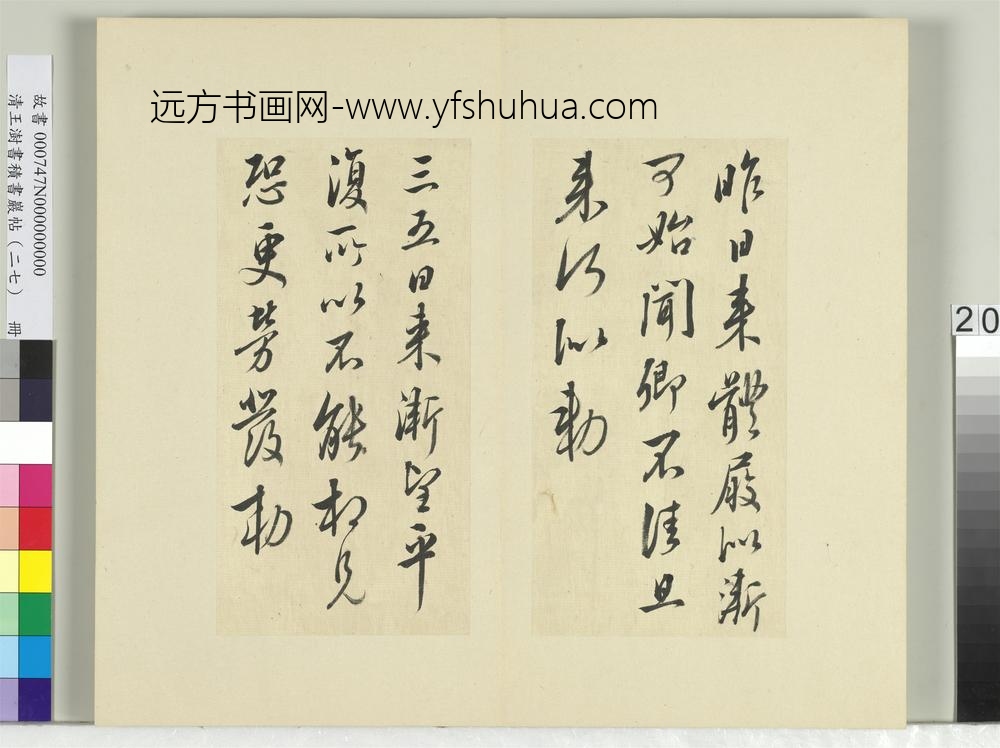 远方书画网-www.yfshuhua.com
昨日來體履似漸
可始聞卿不佳旦
來何似勅
三五日來漸望平
復所以不能相見
恐更勞發勅
故書 000747N000000000
清王澍書積書巖帖（二七） 冊
20